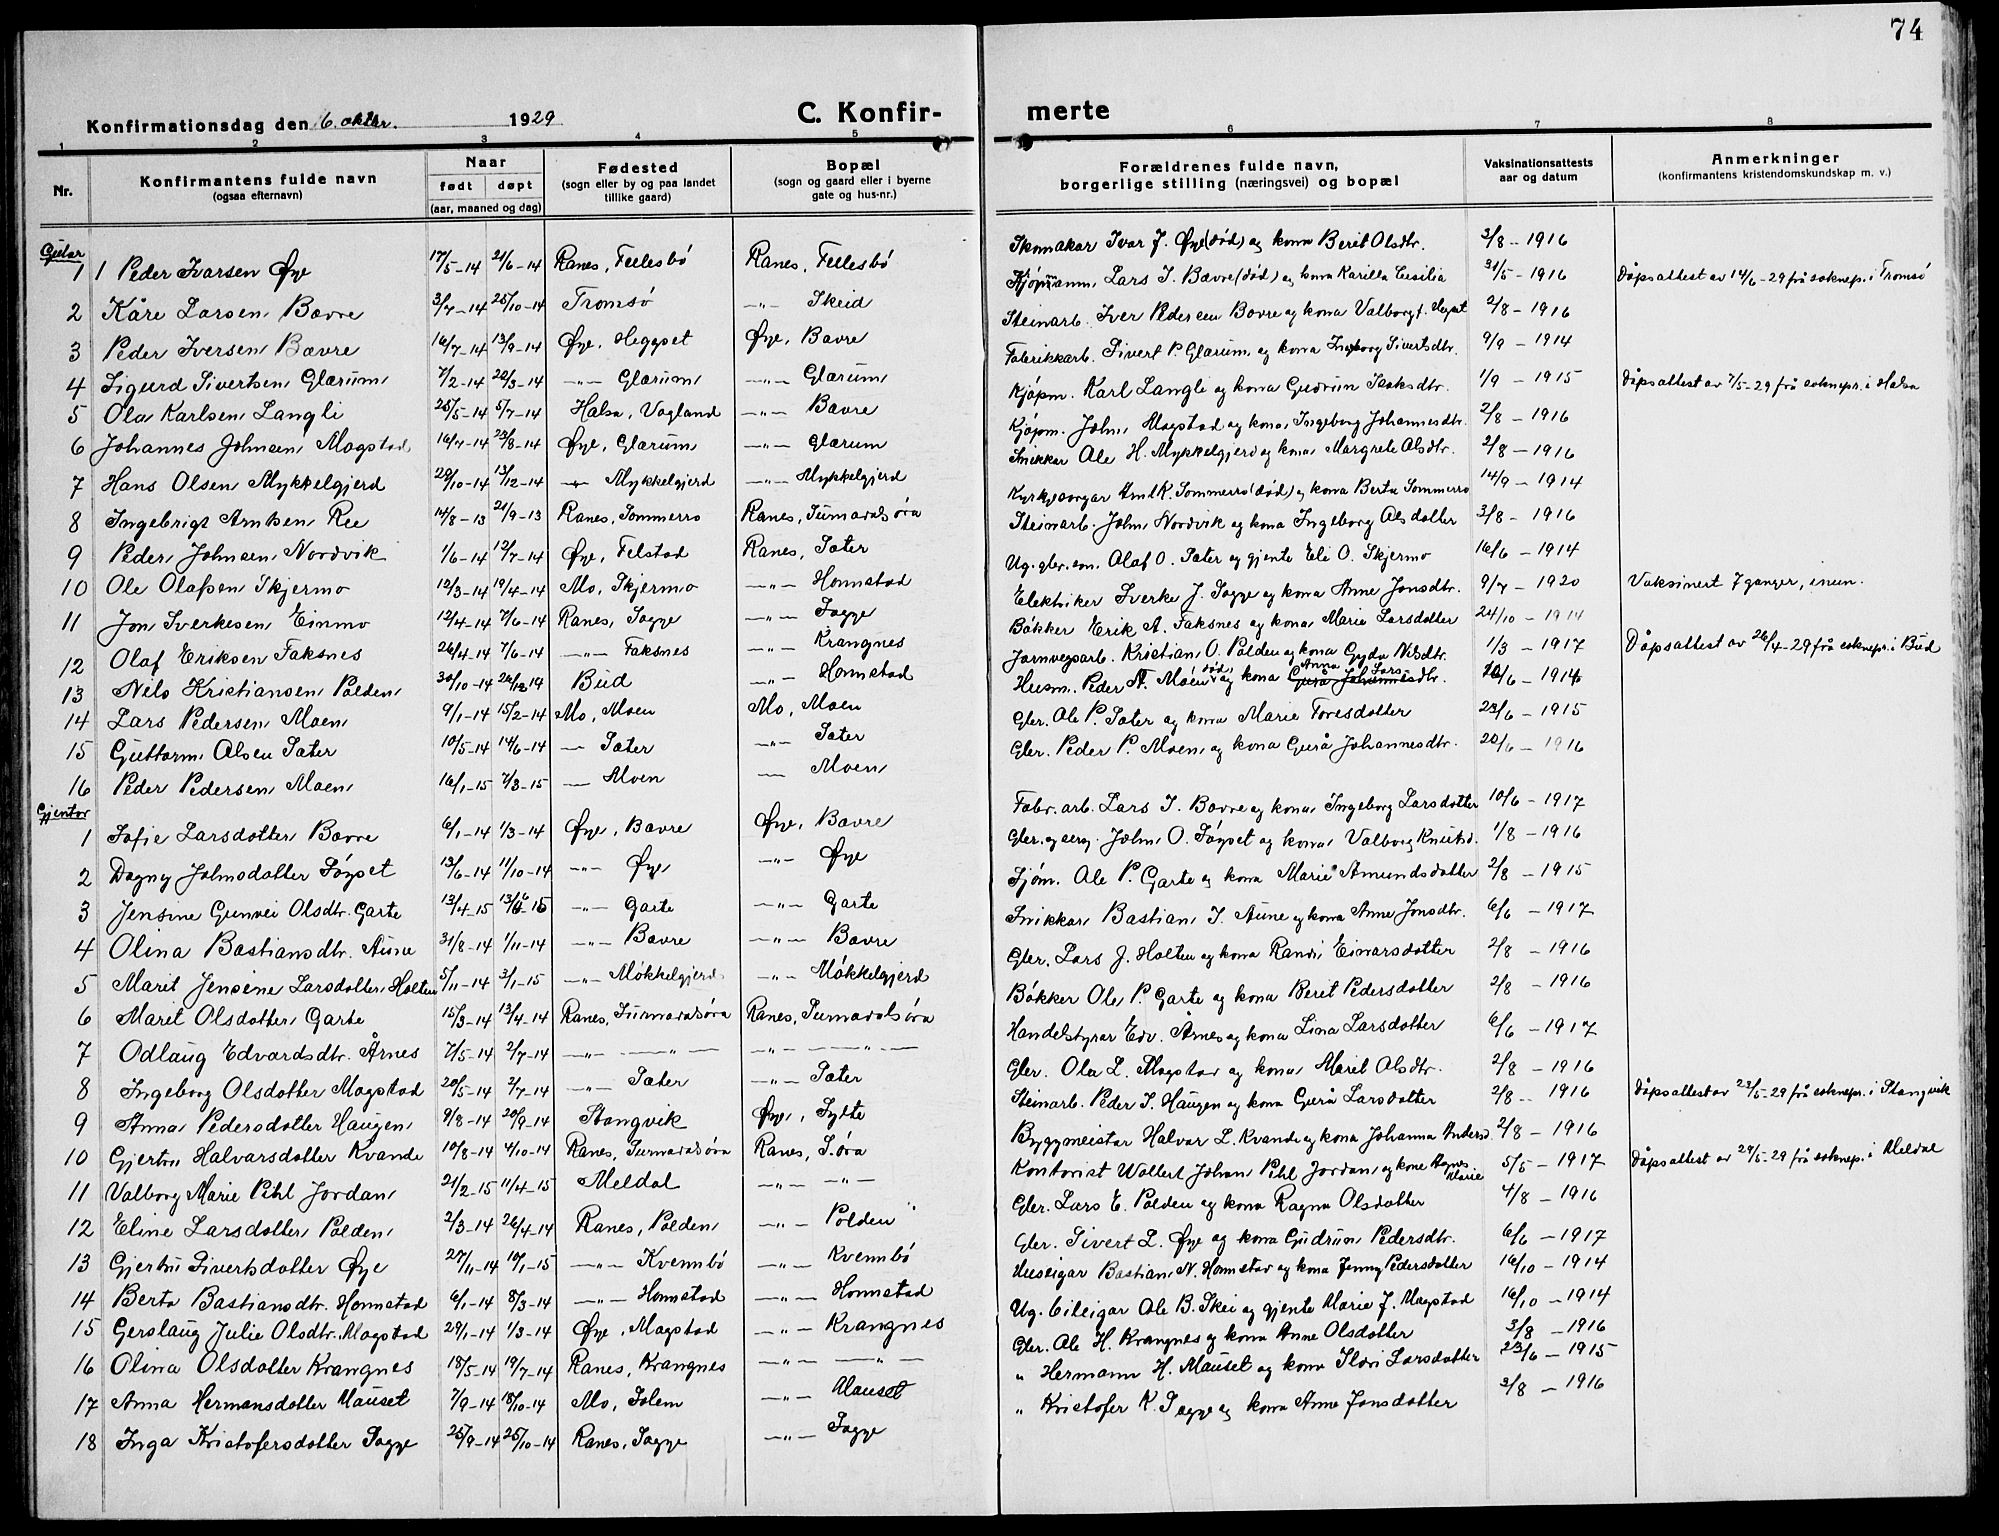 74
Konfirmationsdag den 6. oktbr. 1929 C. Konfir- merte
1 2 3 4 5 6 7 8
Nr. Konfirmantens fulde navn (ogsaa efternavn) Naar født døpt (aar, maaned og dag) Fødested (sogn eller by og paa landet tillike gaard) Bopæl (sogn og gaard eller i byerne gate og hus-nr.) Forældrenes fulde navn, borgerlige stilling (næringsvei) og bopæl Vaksinationsattests aar og datum Anmerkninger (konfirmantens kristendomskundskap m. v.)
Gutar
1 1 Peder Ivarsen Øye 17/5-14 21/6-14 Ranes, Fellesbö Ranes, Fellesbö Skomakar Ivar J. Øye (död) og kona Berit Olsdtr. 3/8 - 1916
2 Kåre Larsen Bævre 3/7-14 25/10-14 Tromsö -"- Skeid Kjöpmann Lars I. Bævre (död) og kona Karilla Cesilia 31/5 - 1916 Dåpsattest av 14/6-29 frå soknepr. i Tromsö
3 Peder Iversen Bævre 16/7-14 13/9-14 Øye, Heggset Øye, Bævre Steinarb. Iver Pedersen Bævre og kona Valborg f. Hegset 2/8 - 1916
4 Sigurd Sivertsen Glærum 7/2-14 22/3-14 -"- Glærum -"- Glærum Fabrikkarb. Sivert P. Glærum og kona Ingeborg Sivertsdtr. 9/9 - 1914
5 Ola Karlsen Langli 25/5-14 5/7-14 Halsa, Vagland -"- Bævre Kjöpm. Karl Langli og kona Gudrun Isaksdtr. 1/9 - 1915 Dåpsattest av 7/5-29 frå soknepr. i Halsa
6 Johannes Johnsen Magstad 16/7-14 23/8-14 Øye, Glærum -"- Glærum Kjöpm. John Magstad og kona Ingeborg Johannesdtr. 2/8 - 1916
7 Hans Olsen Mykkelgjerd 29/10-14 13/12-14 -"- Mykkelgjerd -"- Mykkelgjerd Snikkar Ole H. Mykkelgjerd og kona Margrete Olsdtr. 2/8 - 1916
8 Ingebrigt Arntsen Ree 14/8-13 21/9-13 Ranes, Sommerro Ranes, Surnadalsöra Kyrkjesorgar Arnt K. Sommerro (död) og kona Berta Sommerro 14/9 - 1914
9 Peder Johnsen Nordvik 1/6-14 12/7-14 Øye, Felstad Ranes, Sæter Steinarb. John Nordvik og kona Ingeborg Olsdotter 3/8 - 1916
10 Ole Olafsen Skjermo 12/3-14 19/4-14 Mo, Skjermo -"- Honnstad Ug. gbr. son. Olaf O. Sæter og gjente Eli O. Skjermo 16/6 - 1914
11 Jon Sverkesen Einmo 12/4-14 7/6-14 Ranes, Sogge -"- Sogge Elektriker Sverke J. Sogge og kona Anne Jonsdtr. 9/7 - 1920 Vaksinert 7 ganger, inum.
12 Olaf Eriksen Faksnes 26/4-14 7/6-14 -"- Faksnes -"- Krangnes Bökker Erik A. Faksnes og kona Marie Larsdotter 24/10 - 1914
13 Nels Kristiansen Polden 30/10-14 26/12 14 Bud -"- Honnstad Jarnvegsarb. Kristian O. Polden og kona Gyda Nilsdtr. 1/3 - 1917 Dåpsattest av 26/4-29 frå soknepr. i Bud
14 Lars Pedersen Moen 9/1-14 15/2-14 Mo, Moen Mo, Moen Husm. Peder N. Moen död og kona Anna Lars Gurå Johannesdtr. 20/6 - 1914
15 Guttorm Olsen Sæter 10/5-14 14/6-14 - Sæter -"- Sæter Gbr. Ole P. Sæter og kona Marie Toresdotter 23/6 - 1915
16 Peder Pedersen Moen 16/1-15 7/3-15 - Moen - Moen Gbr. Peder P. Moen og kona Gurå Johannesdtr. 20/6 - 1916
Gjentor
1 Sofie Larsdotter Bævre 6/1-14 1/3-14 Øye, Bævre Øye, Bævre Fabr. arb. Lars I. Bævre og kona Ingeborg Larsdotter 10/6 - 1917
2 Dagny Johnsdotter Söyset 13/6-14 11/10-14 -"- Øye -"- Øye Gbr. og John O. Söyset og kona Valborg Knutsd. 1/8 - 1916
3 Jensine Gunvei Olsdtr. Garte 13/4-15 13/6-15 -"- Garte -"- Garte Sjöm. Ole P. Garte og kona Marie Amundsdotter 2/8 - 1915
4 Olina Bastiansdtr. Aune 31/8-14 1/11-14 -"- Bævre -"- Bævre Snikkar Bastian I. Aune og kona Anne Jonsdtr. 6/6 - 1917
5 Marit Jensine Larsdotter Holten 5/11-14 3/1-15 -"- Mökkelgjerd -"- Mökkelgjerd Gbr. Lars J. Holten og kona Randi Einarsdotter 2/8 - 1916
6 Marit Olsdotter Garte 15/3-14 13/4-14 Ranes, Surnadalsöra Ranes, Surnadalsöra Bökker Ole P. Garte og kona Berit Pedersdotter 2/8 - 1916
7 Odlaug Edvardsdtr. Årnes 7/5-14 2/7-14 -"- -"- -"- -"- Handelstyrar Edv. Årnes og kona Lina Larsdotter 6/6 - 1917
8 Ingeborg Olsdotter Magstad 20/5-14 2/7-14 -"- Sæter -"- Sæter Gbr. Ola L. Magstad og kona Marit Olsdtr. 2/8 - 1916
9 Anna Pedersdotter Haugen 9/8-14 20/9-14 Stangvik Øye, Sylte Steinarb. Peder I. Haugen og kona Gurå Larsdotter 2/8 - 1916 Dåpsattest av 23/5-29 frå soknepr. i Stangvik
10 Gjertru Halvarsdotter Kvande 10/8-14 4/10-14 Ranes, Surnadalsöra Ranes, S.öra Byggmeistar Halvar L. Kvande og kona Johanna Andersd. 2/8 - 1916
11 Valborg Marie Pihl Jordan 21/2-15 11/4-15 Meldal -"- -"- Kontorist Wollert Johan Pihl Jordan og kone Agnes Marie 5/5 - 1917 Dåpsattest av 24/5-29 frå soknepr. i Meldal
12 Eline Larsdotter Polden 2/3-14 26/4-14 Ranes, Polden -"- Polden Gbr. Lars E. Polden og kona Ragna Olsdotter 4/8 - 1916
13 Gjertru Sivertsdotter Øye 27/11-14 10/1-15 -"- Kvennbö -"- Kvennbö Gbr. Sivert L. Øye og kona Gudrun Pedersdtr. 6/6 - 1917
14 Berta Bastiansdtr. Honnstad 6/1-14 8/3-14 -"- Honnstad -"- Honnstad Huseigar Bastian N. Honnstad og kona Jenny Pedersdotter 16/10 - 1914
15 Gerslaug Julie Olsdtr. Magstad 29/1-14 1/3-14 Øye, Magstad -"- Krangnes Ug. bileigar Ole B. Skei og gjente Marie J. Magstad 16/10 - 1914
16 Olina Olsdotter Krangnes 18/5-14 19/7-14 Ranes, Krangnes -"- -"- Gbr. Ole H. Krangnes og kona Anne Olsdotter 3/8 - 1916
17 Anna Hermansdotter Mauset 7/9-14 18/10-14 Mo, Solem -"- Mauset " Hermann H. Mauset og kona Ildri Larsdotter 23/6 - 1915
18 Inga Kristofersdotter Sogge 25/9-14 25/10-14 Ranes, Sogge -"- Sogge " Kristofer K. Sogge og kona Anne Jonsdotter 3/8 - 1916